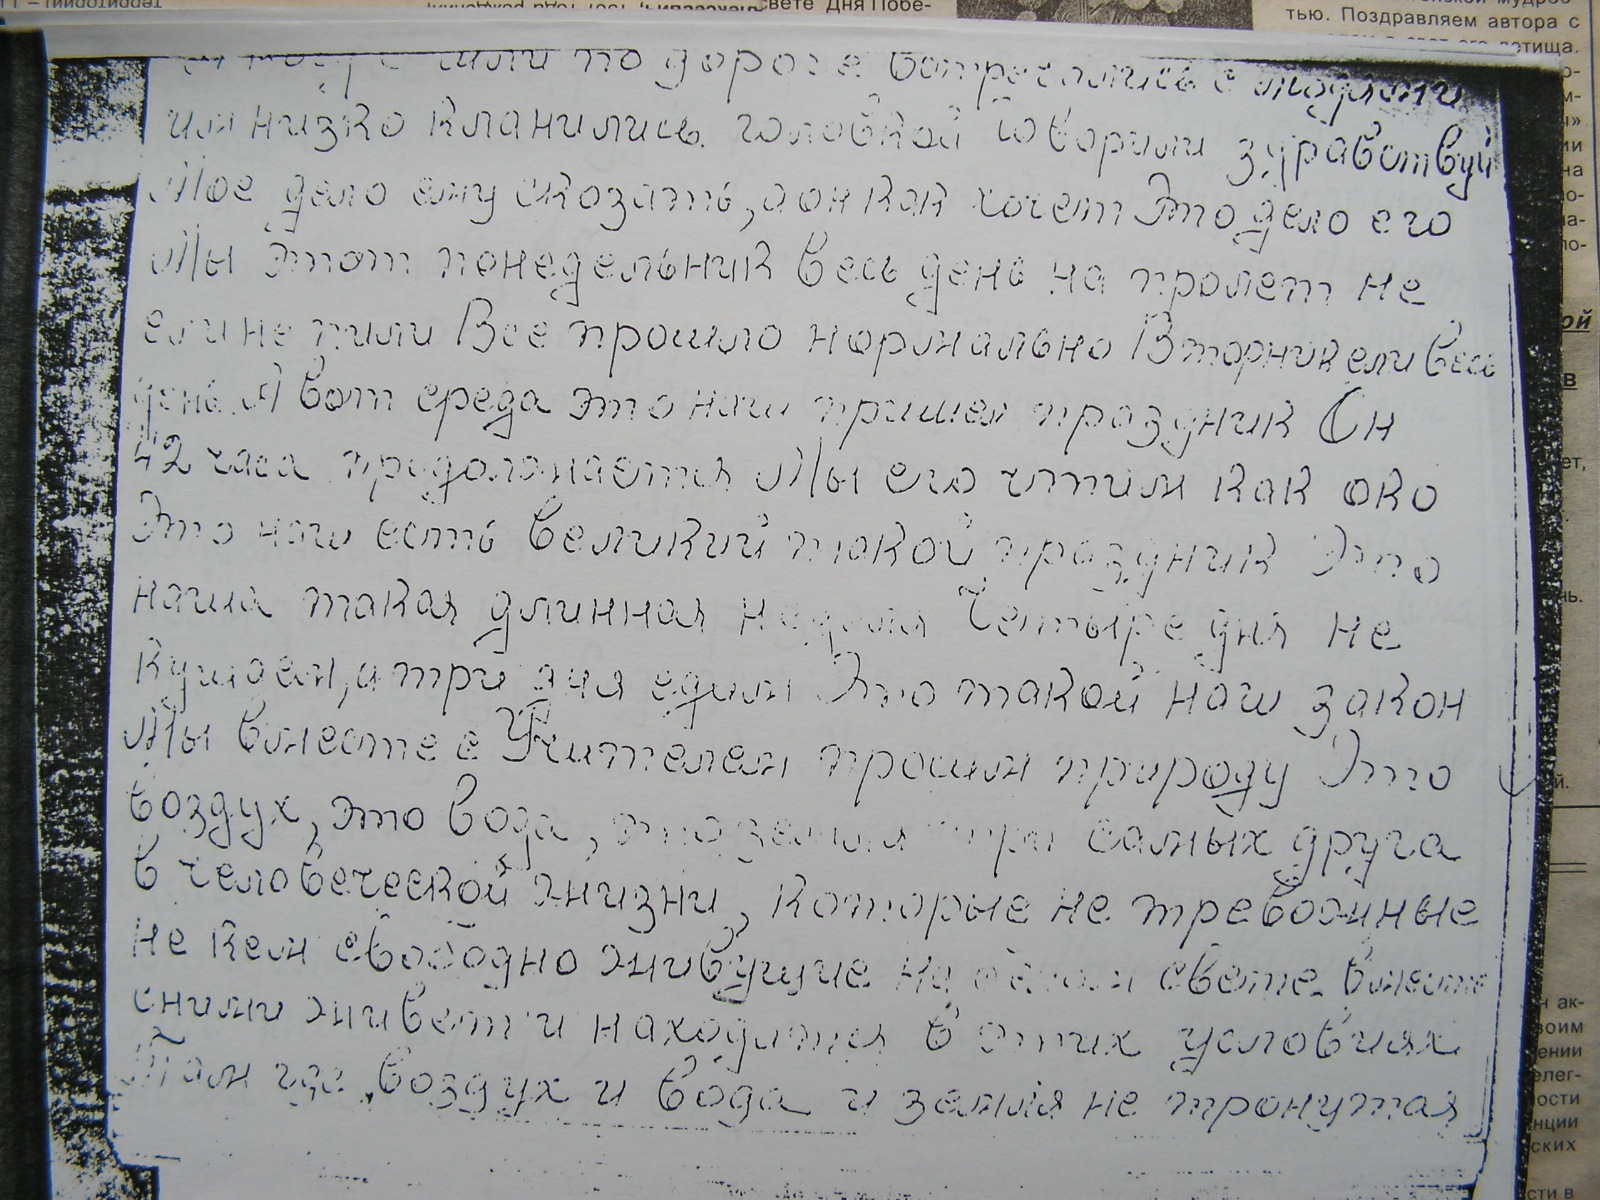 свете Дня Побе-
тью. Поздравляем автора с
шли по дороге встречались с людьми
им низко кланились головкой Говорили здравствуй
Мое дело ему сказать, а он как хочет Это дело его
Мы этот понедельник весь день на пролет не
ели не пили Все прошло нормально Вторник ели весь
день А вот среда это наш пришел праздник Он
42 часа продолжается Мы его чтим как око
Это наш есть великий такой праздник Это
наша такая длинная неделя Четыре дня не
кушаем, а три дня едим Это такой наш закон
Мы вместе с Учителем просим природу Это
воздух, это вода, это земля три самых друга
в человеческой жизни, которые не тревожиные
не кем свободно живущие на белом свете вместе
сними живет и находится в этих условиях
Там где воздух и вода и земля не тронутая